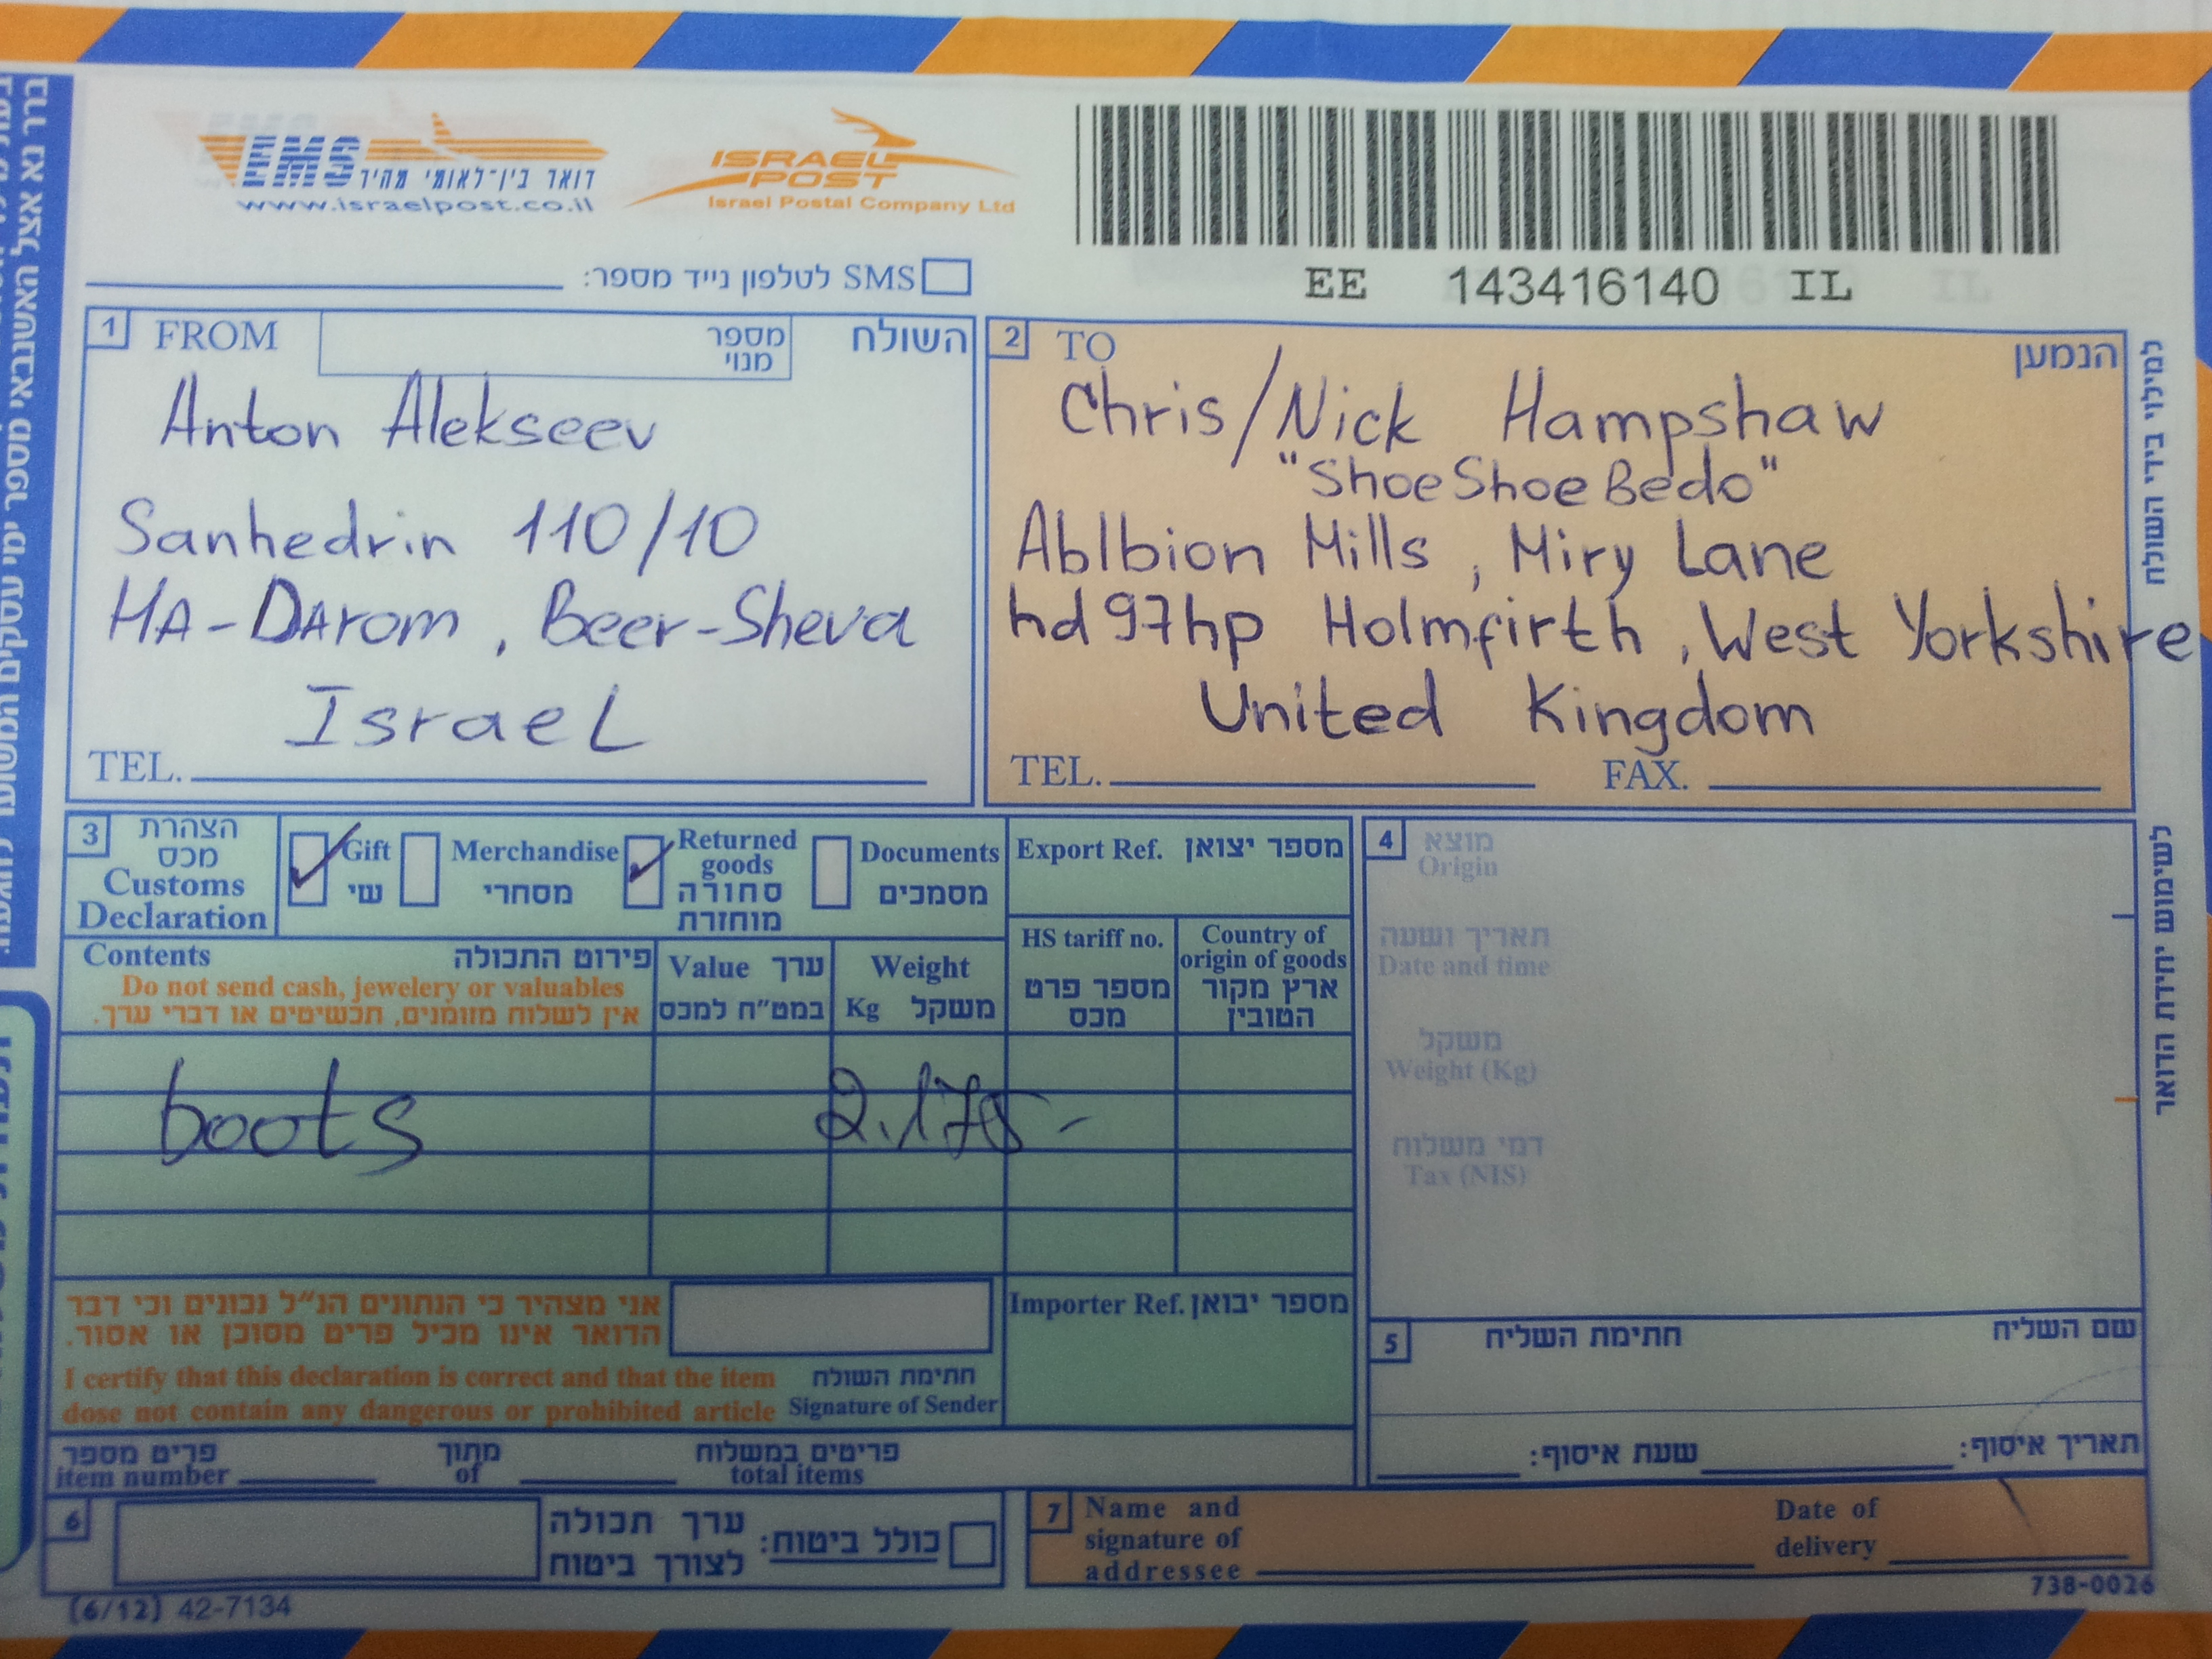 EMS
דואר בין-לאומי מהיר
www.israelpost.co.il
ISRAEL
POST
Israel Postal Company Ltd
EE 143416140 IL
SMS לטלפון נייד מספר:
1 FROM מספר מנוי השולח
Anton Alekseev
Sanhedrin 110/10
HA-DAROM, Beer-Sheva
Israel
TEL.
2 TO הנמען
Chris/Nick Hampshaw
"ShoeShoeBedo"
Ablbion Mills, Miry Lane
hd97hp Holmfirth, West Yorkshire
United Kingdom
TEL. FAX.
למילוי בידי השולח
3 הצהרת
מכס
Customs
Declaration
Gift
שי
Merchandise
מסחרי
Returned
goods
סחורה
מוחזרת
Documents
מסמכים
Export Ref. מספר יצואן
Contents פירוט התכולה
Do not send cash, jewelery or valuables
אין לשלוח מזומנים, תכשיטים או דברי ערך.
Value ערך
במט"ח למכס
Weight
Kg משקל
HS tariff no.
מספר פרט
מכס
Country of
origin of goods
ארץ מקור
הטובין
boots 2.175-
אני מצהיר כי הנתונים הנ"ל נכונים וכי דבר
הדואר אינו מכיל פריט מסוכן או אסור.
I certify that this declaration is correct and that the item
dose not contain any dangerous or prohibited article
חתימת השולח
Signature of Sender
Importer Ref. מספר יבואן
4 מוצא
Origin
תאריך ושעה
Date and time
משקל
Weight (Kg)
דמי משלוח
Tax (NIS)
לשימוש יחידת הדואר
5 חתימת השליח שם השליח
תאריך איסוף: שעת איסוף:
פריט מספר מתוך פריטים במשלוח
item number of total items
6 ערך תכולה
לצורך ביטוח
כולל ביטוח:
7 Name and
signature of
addressee
Date of
delivery
(6/12) 42-7134
738-0026